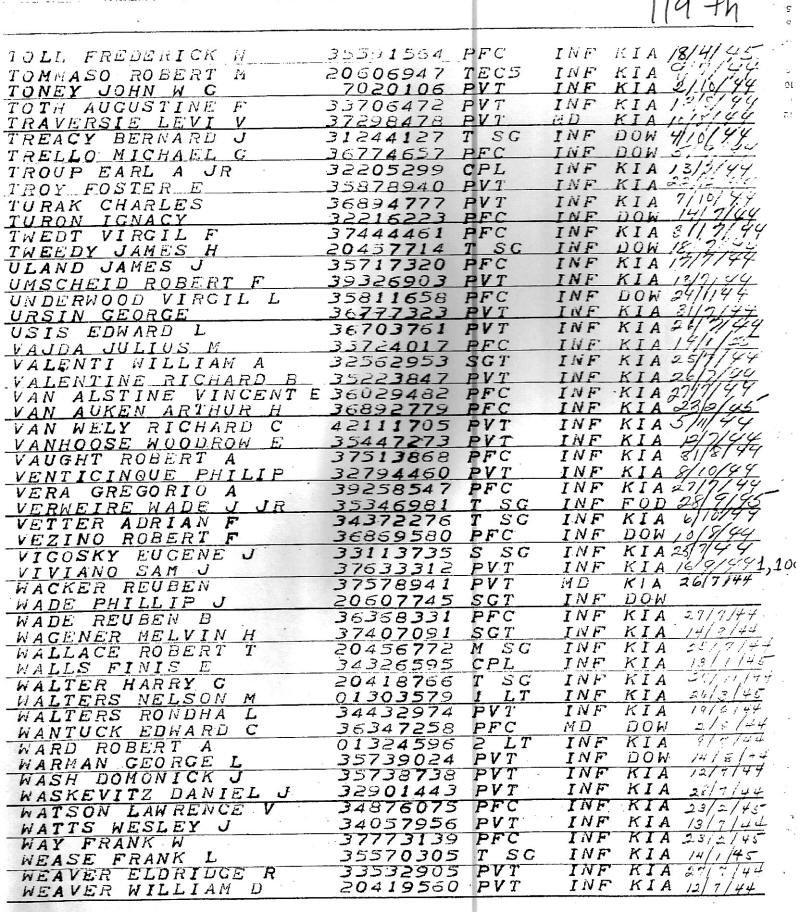 119 th
TOLL FREDERICK W 35591564 PFC INF KIA 18/4/45
TOMMASO ROBERT M 20606947 TEC5 INF KIA
TONEY JOHN W G 7020106 PVT INF KIA 2/10/44
TOTH AUGUSTINE F 33706472 PVT INF KIA
TRAVERSIE LEVI V 37298478 PVT MD KIA
TREACY BERNARD J 31244127 T SG INF DOW 4/10/44
TRELLO MICHAEL G 36774657 PFC INF DOW
TROUP EARL A JR 32205299 CPL INF KIA
TROY FOSTER E 35878940 PVT INF KIA
TURAK CHARLES 36894777 PVT INF KIA 7/10/44
TURON IGNACY 32216223 PFC INF DOW 14/7/44
TWEDT VIRGIL F 37444461 PFC INF KIA
TWEEDY JAMES H 20457714 T SG INF DOW
ULAND JAMES J 35717320 PFC INF KIA 17/7/44
UMSCHEID ROBERT F 39326903 PVT INF KIA
UNDERWOOD VIRGIL L 35811658 PFC INF DOW
URSIN GEORGE 36777323 PVT INF KIA
USIS EDWARD L 36703761 PVT INF KIA 26/7/44
VAJDA JULIUS M 33724017 PFC INF KIA
VALENTI WILLIAM A 32562953 SGT INF KIA 25/7/44
VALENTINE RICHARD B 35223847 PVT INF KIA
VAN ALSTINE VINCENT E 36029482 PFC INF KIA 27/7/44
VAN AUKEN ARTHUR H 36892779 PFC INF KIA 23/2/45
VAN WELY RICHARD C 42111705 PVT INF KIA 5/11/44
VANHOOSE WOODROW E 35447273 PVT INF KIA 12/7/44
VAUGHT ROBERT A 37513868 PFC INF KIA 31/8/44
VENTICINQUE PHILIP 32794460 PVT INF KIA 8/10/44
VERA GREGORIO A 39258547 PFC INF KIA 27/7/44
VERWEIRE WADE J JR 35346981 T SG INF FOD 28/9/45
VETTER ADRIAN F 34372276 T SG INF KIA 6/10/44
VEZINO ROBERT F 36869580 PFC INF DOW 10/8/44
VIGOSKY EUGENE J 33113735 S SG INF KIA 25/7/44
VIVIANO SAM J 37633312 PVT INF KIA 16/9/44
WACKER REUBEN 37578941 PVT MD KIA 26/7/44
WADE PHILLIP J 20607745 SGT INF DOW
WADE REUBEN B 36368331 PFC INF KIA 27/7/44
WAGENER MELVIN H 37407091 SGT INF KIA
WALLACE ROBERT T 20456772 M SG INF KIA
WALLS FINIS E 34326595 CPL INF KIA
WALTER HARRY G 20418766 T SG INF KIA
WALTERS NELSON M 01303579 1 LT INF KIA 24/3/45
WALTERS RONDHA L 34432974 PVT INF KIA
WANTUCK EDWARD C 36347258 PFC MD DOW
WARD ROBERT A 01324596 2 LT INF KIA
WARMAN GEORGE L 35739024 PVT INF DOW
WASH DOMONICK J 35738738 PVT INF KIA 12/7/44
WASKEVITZ DANIEL J 32901443 PVT INF KIA
WATSON LAWRENCE V 34876075 PFC INF KIA 23/2/45
WATTS WESLEY J 34057956 PVT INF KIA
WAY FRANK W 37773139 PFC INF KIA 23/2/45
WEASE FRANK L 35570305 T SG INF KIA 14/1/45
WEAVER ELDRIDGE R 33532905 PVT INF KIA 27/7/44
WEAVER WILLIAM D 20419560 PVT INF KIA 12/7/44